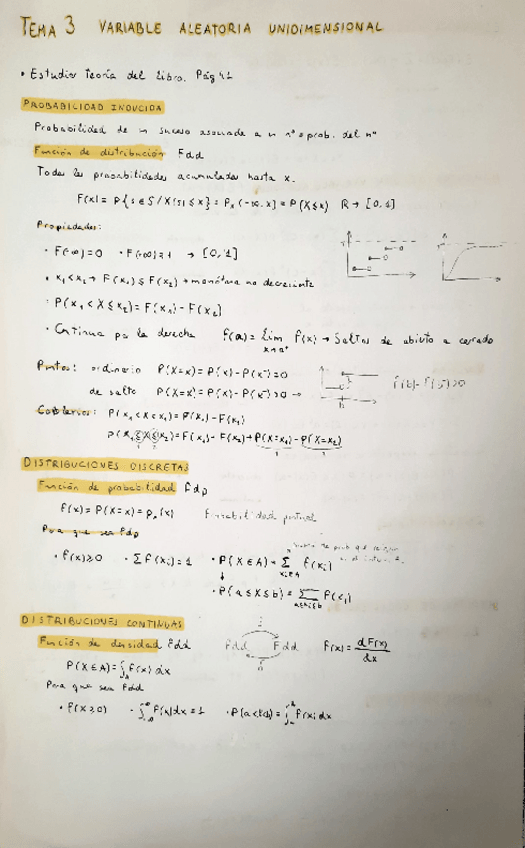 TEMA 3 VARIABLE ALEATORIA UNIDIMENSIONAL
• Estudiar teoría del libro. Pág 41
PROBABILIDAD INDUCIDA
Probabilidad de un suceso asociada a un nº = prob. del nº
Función de distribución Fdd
Todas las probabilidades acumuladas hasta x.
F(x) = P{s ∈ S / X(s) ≤ x} = Px(-∞, x] = P(X ≤ x) R → [0,1]
Propiedades:
· F(-∞) = 0 · F(+∞) = 1 → [0,1]
• x1 < x2 → F(x1) ≤ F(x2) → monótona no decreciente
· P(x1 < X ≤ x2) = F(x1) - F(x2)
· Continua por la derecha F(a) = Lim F(x) → Saltos de abierto a cerrado
x→a+
Puntos: ordinario P(X=x) = F(x) - F(x-) = 0
de salto P(X=x) = F(x) - F(x-) > 0 →
Corolarios: P(x1 < X < x2) = F(x2) - F(x1)
P(x1 ≤ X ≤ x2) = F(x1) - F(x2) + P(X=x1) - P(X=x2)
DISTRIBUCIONES DISCRETAS
Función de probabilidad Fdp
f(x) = P(X=x) = px(x) Probabilidad puntual
Para que sea fdp
· f(x) ≥ 0 · Σ f(xi) = 1 · P(X ∈ A) = Σ f(xi)
xi∈A
↓
· P(a ≤ X ≤ b) = Σ f(xi)
a≤xi≤b
DISTRIBUCIONES CONTINUAS
Función de densidad fdd
Fdd Fdd f(x) = dF(x)/dx
P(X ∈ A) = ∫A f(x) dx
Para que sea fdd
· f(x ≥ 0) · ∫-∞^∞ f(x) dx = 1 · P(a<x<b) = ∫a^b f(x) dx